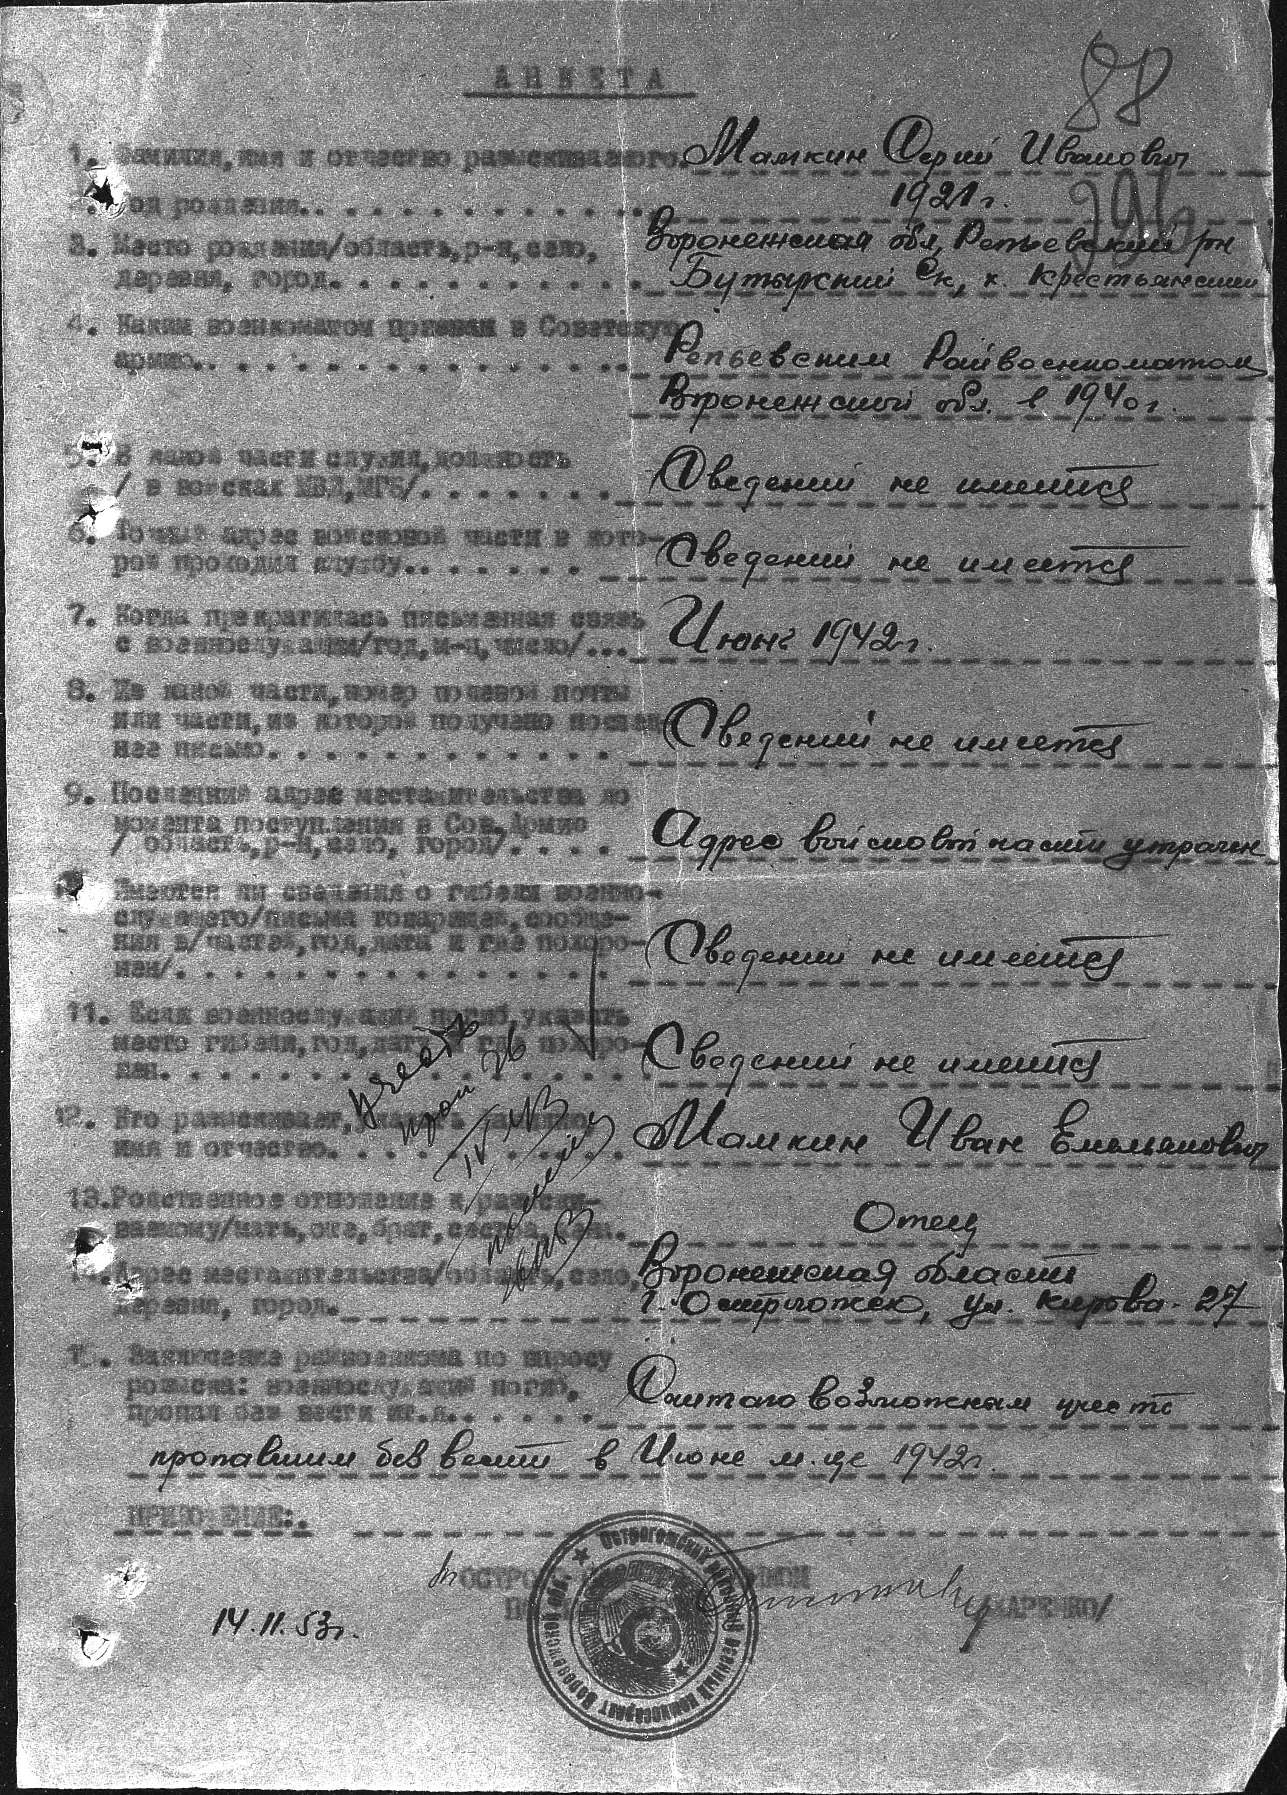 АНКЕТА
88
1. Фамилия, имя и отчество разыскиваемого. Мамкин Сергий Иванович
Год рождения. 1921 г.
3. Место рождения/область, р-н, село, Воронежская обл, Репьевский р-н
деревня, город. Бутырский с/с, х. Крестьянский
4. Каким военкоматом призван в Советскую
армию. Репьевским Райвоенкоматом
Воронежской обл. в 1940 г.
5. В какой части служил, должность
/ в войсках МВД, МГБ/. Сведений не имеится
6. Точный адрес войсковой части в кото-
рой проходил службу. Сведений не имеется
7. Когда прекратилась письменная связь
с военнослужащим/год, м-ц, число/... Июнь 1942 г.
8. Из какой части, номер полевой почты
или части, из которой получено послед
нее письмо. Сведений не имеется
9. Последний адрес местажительства до
момента поступления в Сов. Армию
/ область, р-н, село, город/. Адрес войсковой части утрачен
Имеются ли сведения о гибели военно-
служащего/письма товарищей, сообще-
ния в/частей, год, дата и где похоро-
нен/. Сведений не имеится
11. Если военнослужащий погиб, указать
место гибели, год, дату и где похоро-
нен. Сведений не имеится
12. Кто разыскивает, указать фамилию
имя и отчество. Мамкин Иван Емельянович
13. Родственное отношение к разыски-
ваемому/мать, отец, брат, сестра, Отец
14. Адрес местажительства/область, село, Воронежская область
деревня, город. г. Острогожск, ул. Кирова - 27
15. Заключение райвоенкома по вопросу
розыска: военнослужащий погиб,
пропал без вести ит.д. Считаю возможным учесть
пропавшим без вести в Июне м-це 1942 г.
учесть
26
ПРИЛОЖЕНИЕ:.
14.11.53 г.
Острогожский военный комиссариат Воронежской обл.